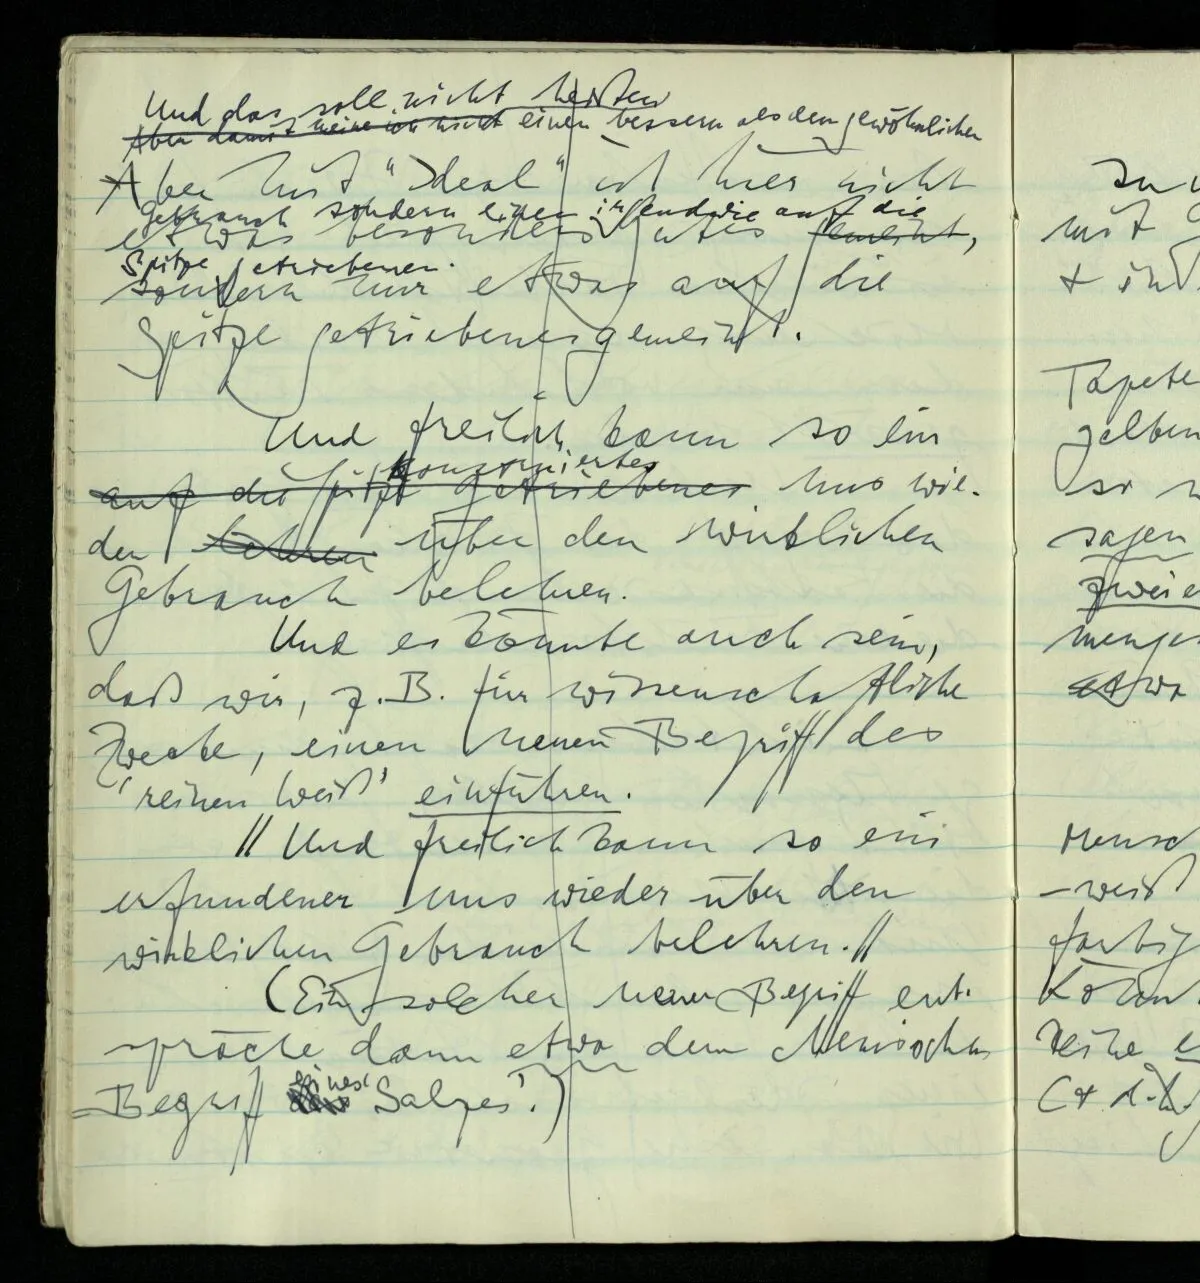 Und das soll nicht heißen
Aber damit meine ich nicht einen bessern als den gewöhnlichen
Aber mit "Ideal" ist hier nicht
Gebrauch sondern einen irgendwie auf die
etwas besonders Gutes gemeint,
Spitze getriebenen.
sondern nur etwas auf die
Spitze getriebenes gemeint.
Und freilich kann so ein
konstruierter
auf die Spitze getriebener uns wie-
der lehren über den wirklichen
Gebrauch belehren.
Und es könnte auch sein,
daß wir, z.B. für wissenschaftliche
Zwecke, einen neuen Begriff des
'reinen Weiß' einführen.
// Und freilich kann so ein
erfundener uns wieder über den
wirklichen Gebrauch belehren. //
(Ein solcher neuer Begriff ent-
spräche dann etwa dem chemischen
eines
Begriff Salzes'.)
zu
mit
+ in
Tapete
gelben
so
sagen
zwei
menges
etwa
Mensch
-weiß
farbig
Könnt
Reihe
(+ d.h.